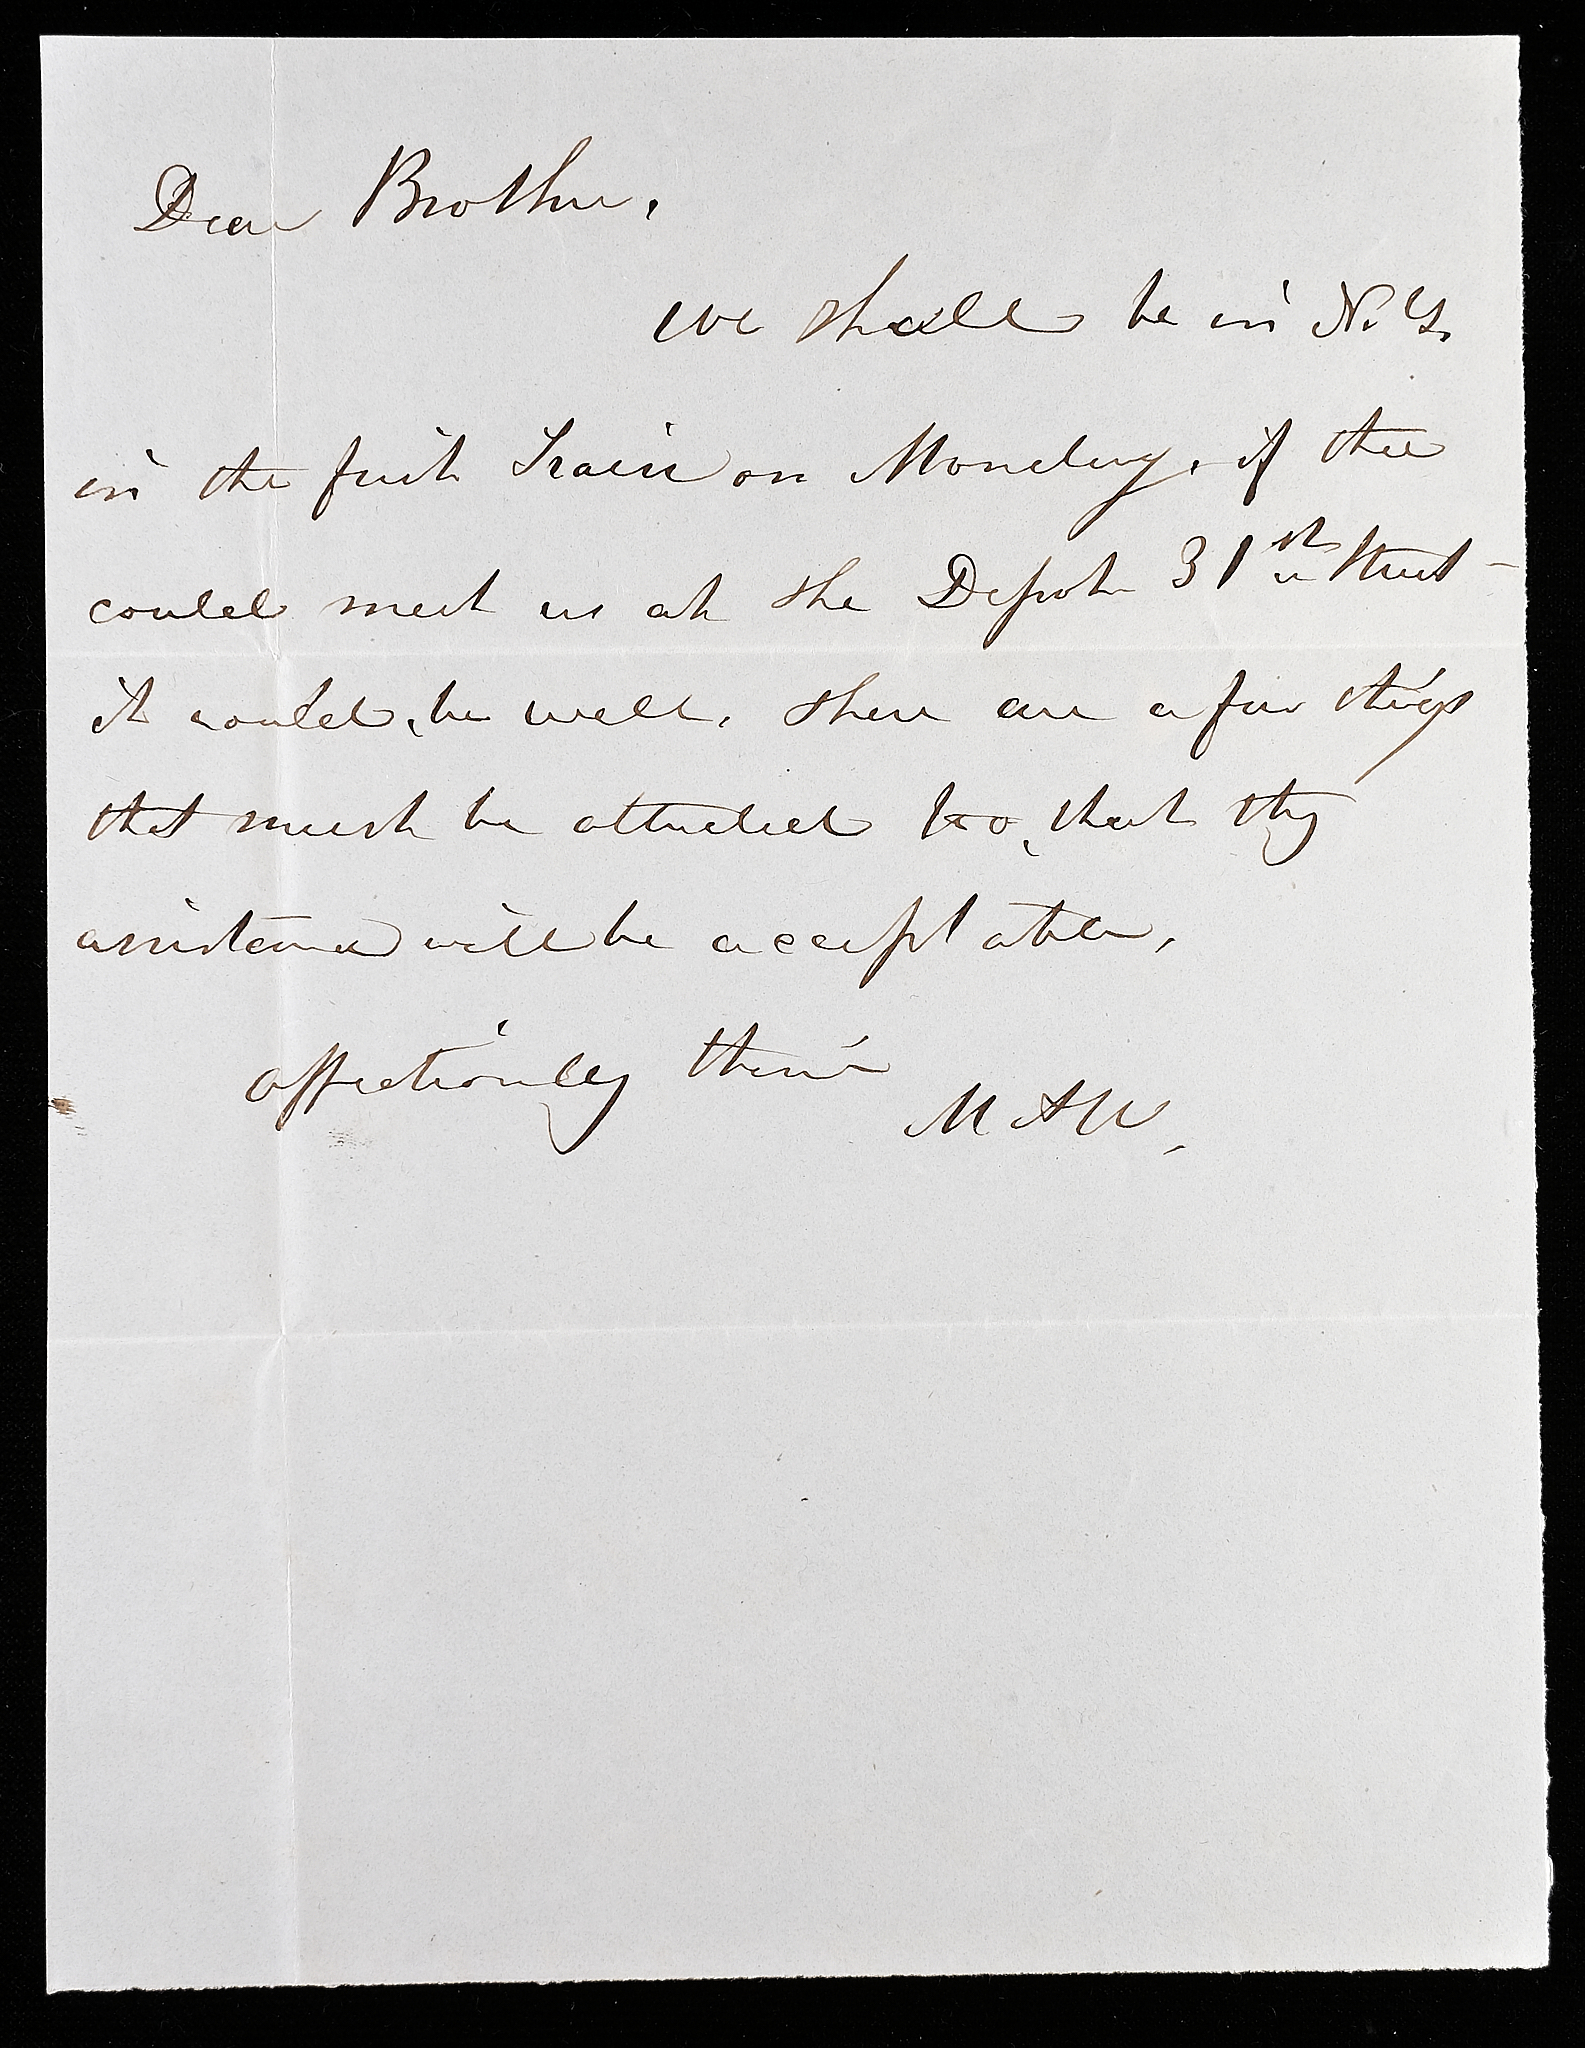 Dear Brother,
we shall be in N. Y.
in the first Train on Monday, if thee
could meet us at the Depot 31st Street -
it would, be well, there are a few things
that must be attended too, that thy
assistance will be acceptable,
affectionly thine
M A W,